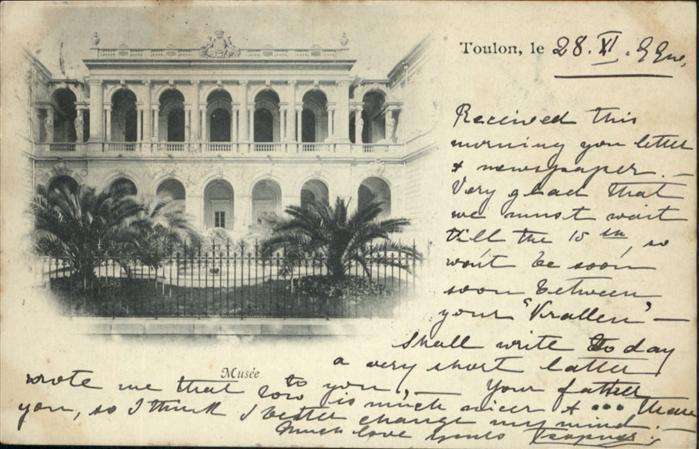 Toulon, le 28. XI. 99
Received this
morning you letter
& newspaper. —
Very glad that
we must wait
till the 15th, so
won't be soon
soon between
your "Krallen" —
shall write to day
a very short letter
Musée
to you, — Your father
wrote me that is much nicer & ... than
you, so I think I better change my mind. —
Much love yours